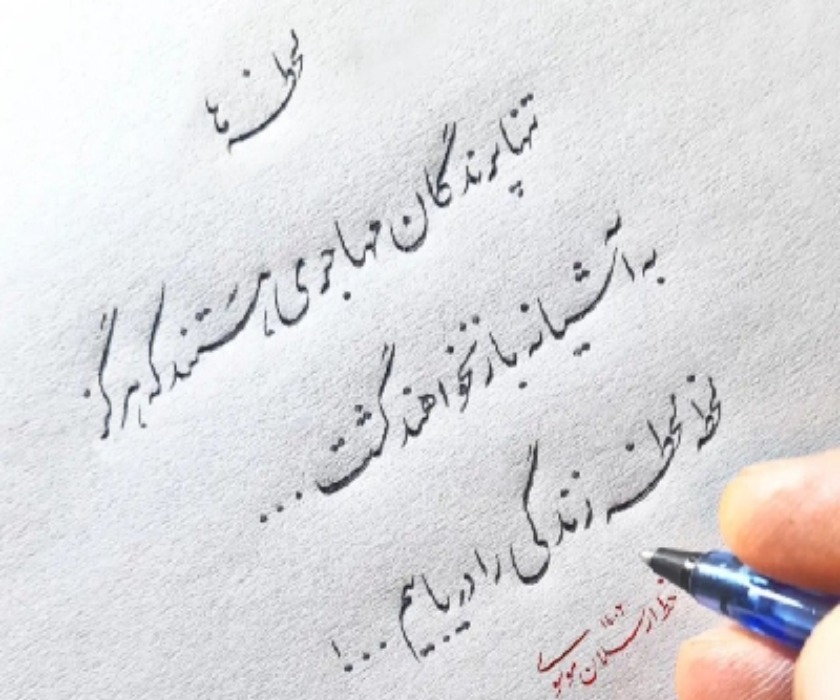 لحظه ها
تنها پرندگان مهاجری هستند که هرگز
به آشیانه باز نخواهند گشت...
لحظه لحظه زندگی را دریابیم...!
خط ارسلان موسوی
۱۴۰۲